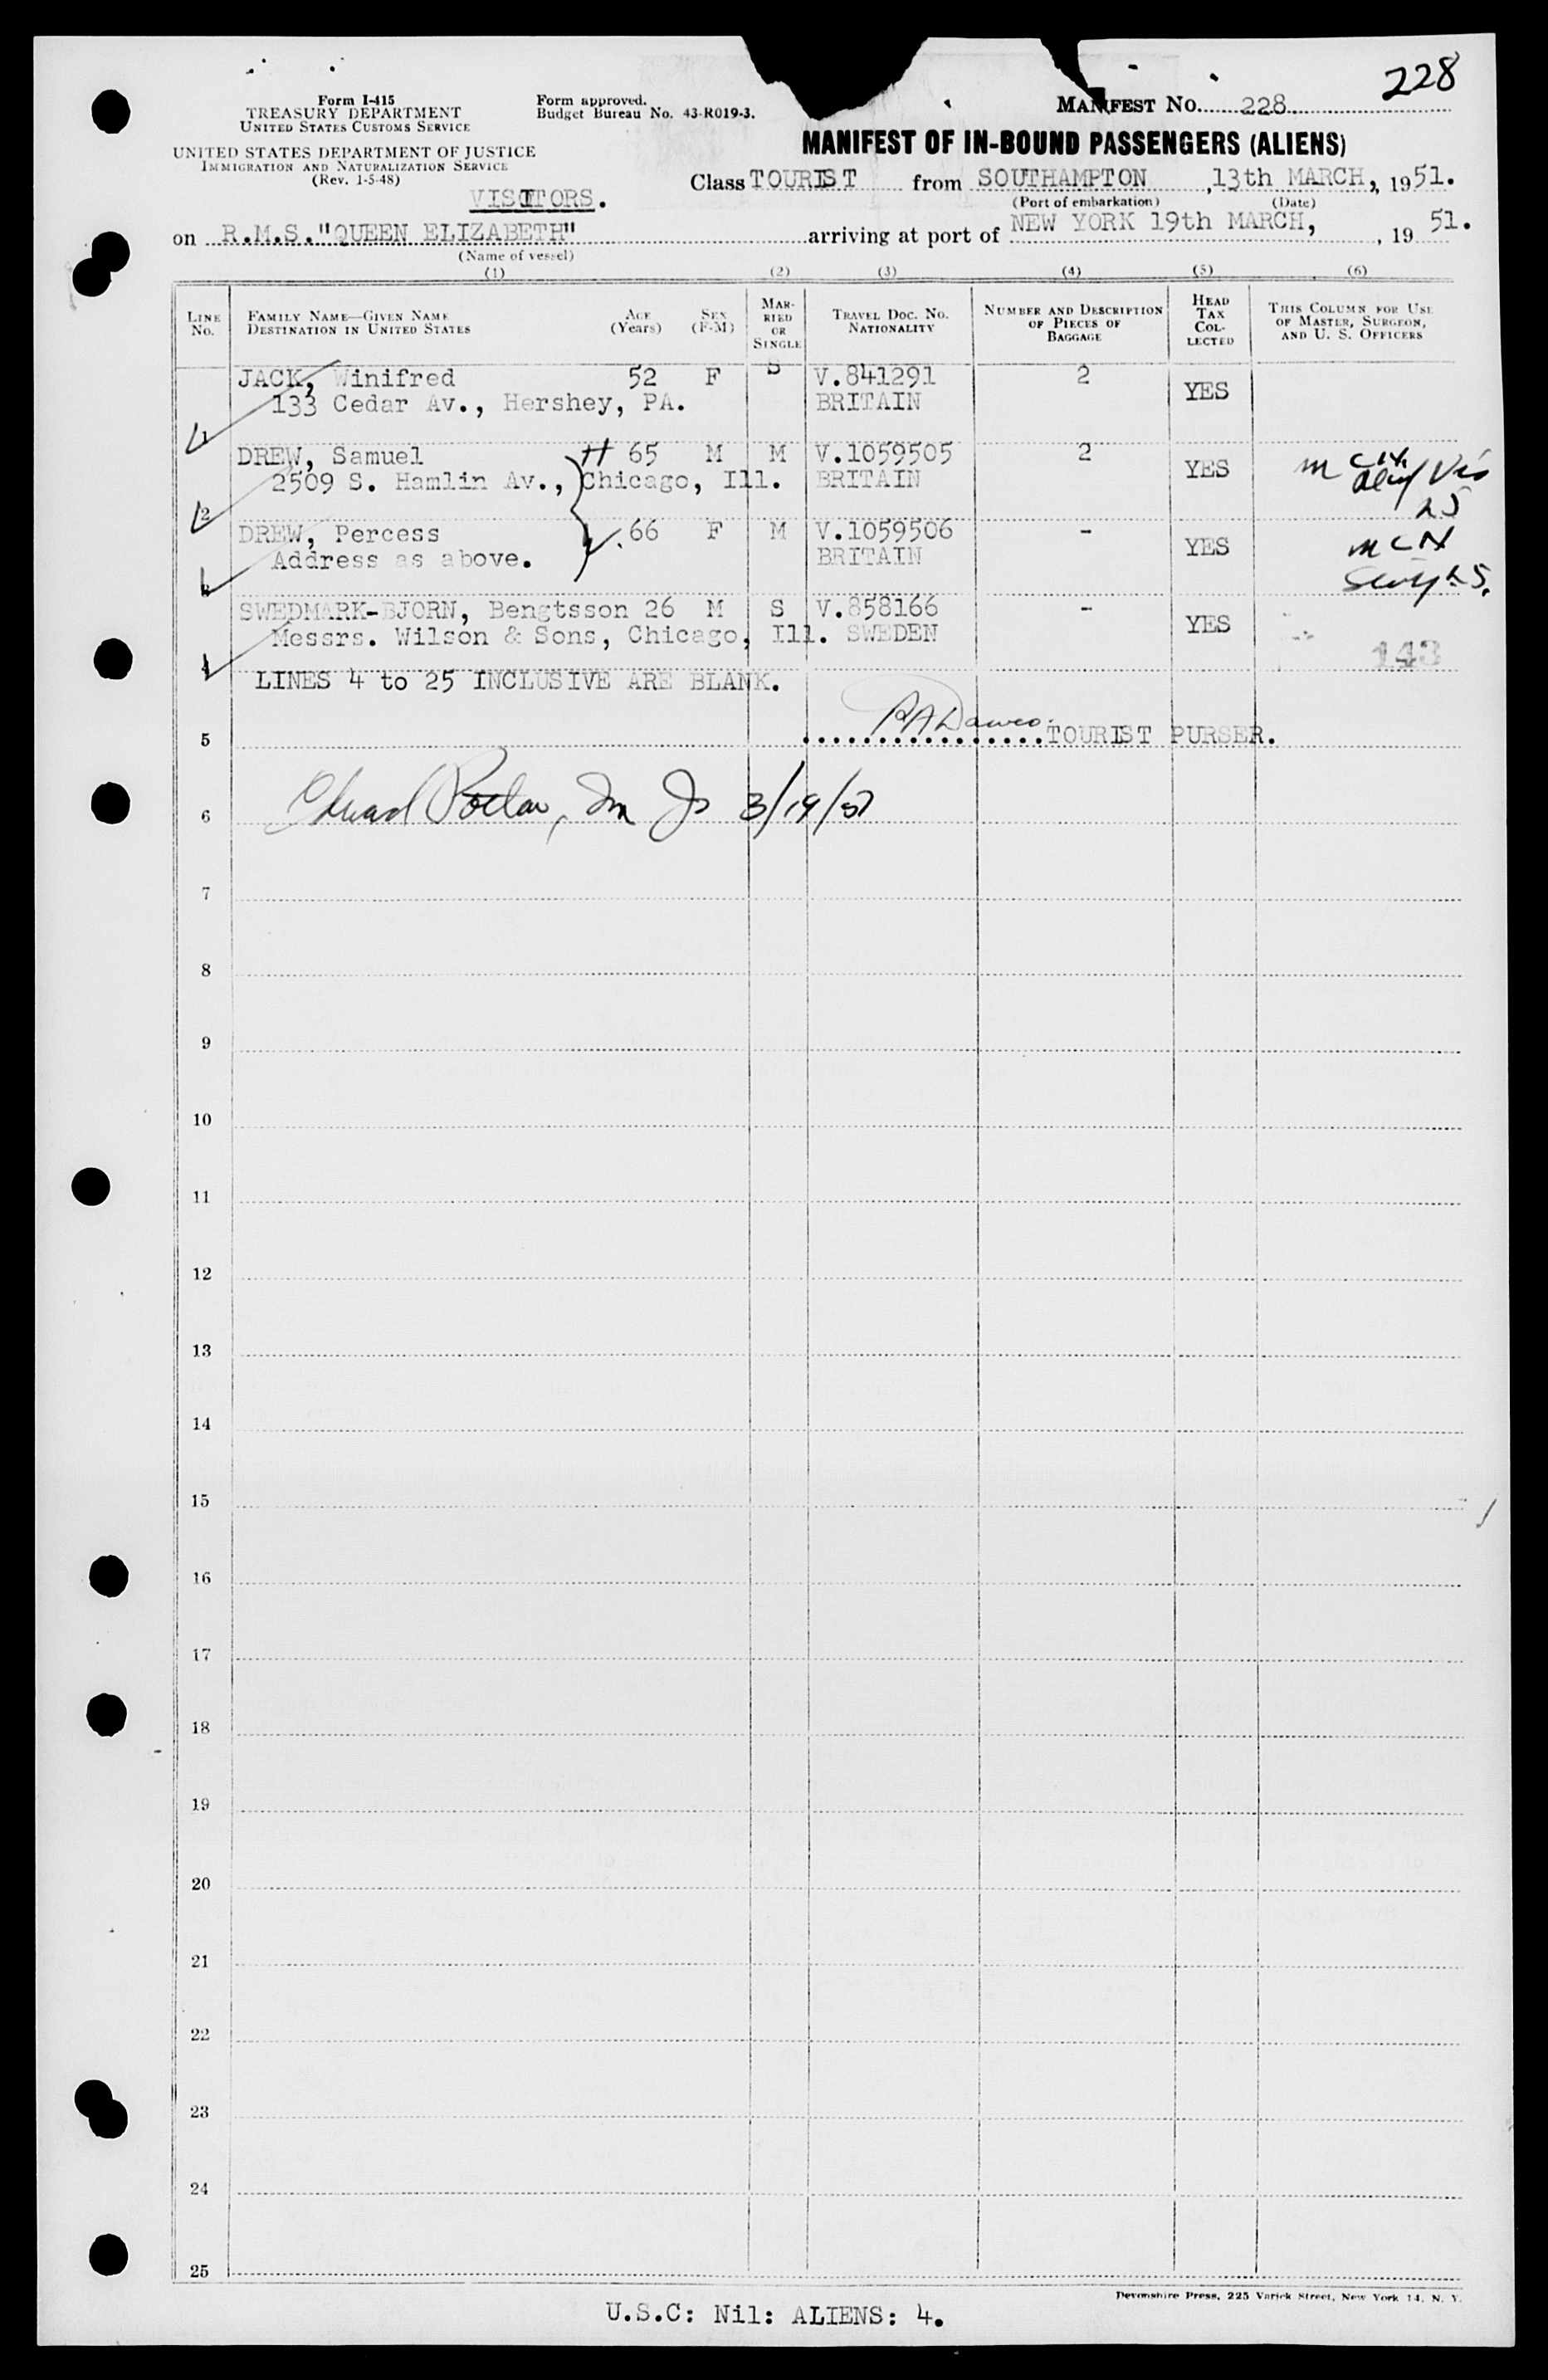 228
Form I-415
TREASURY DEPARTMENT
UNITED STATES CUSTOMS SERVICE
Form approved.
Budget Bureau No. 43-R019-3.
MANIFEST NO. 228
UNITED STATES DEPARTMENT OF JUSTICE
IMMIGRATION AND NATURALIZATION SERVICE
(Rev. 1-5-48)
MANIFEST OF IN-BOUND PASSENGERS (ALIENS)
VISITORS.
Class TOURIST from SOUTHAMPTON, 13th MARCH, 1951.
(Port of embarkation) (Date)
on R.M.S."QUEEN ELIZABETH" arriving at port of NEW YORK 19th MARCH, , 19 51.
(Name of vessel)
(1) (2) (3) (4) (5) (6)
LINE NO. FAMILY NAME—GIVEN NAME DESTINATION IN UNITED STATES AGE (Years) SEX (F-M) MARRIED OR SINGLE TRAVEL DOC. NO. NATIONALITY NUMBER AND DESCRIPTION OF PIECES OF BAGGAGE HEAD TAX COLLECTED THIS COLUMN FOR USE OF MASTER, SURGEON, AND U. S. OFFICERS
JACK, Winifred 52 F S V.841291 2 YES
1 133 Cedar Av., Hershey, PA. BRITAIN
DREW, Samuel H 65 M M V.1059505 2 YES
2 2509 S. Hamlin Av., Chicago, Ill. BRITAIN
DREW, Percess W. 66 F M V.1059506 - YES
3 Address as above. BRITAIN
SWEDMARK-BJORN, Bengtsson 26 M S V.858166 - YES
4 Messrs. Wilson & Sons, Chicago, Ill. SWEDEN 143
LINES 4 to 25 INCLUSIVE ARE BLANK.
5 TOURIST PURSER.
6 3/19/51
7
8
9
10
11
12
13
14
15
16
17
18
19
20
21
22
23
24
25
Devonshire Press, 225 Varick Street, New York 14, N. Y.
U.S.C: Nil: ALIENS: 4.